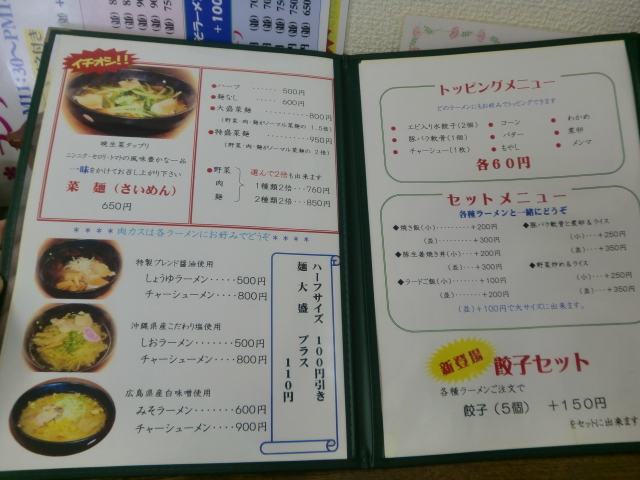 イチオシ!!
晩生菜タップリ
ニンニク・セロリ・トマトの風味豊かな一品
一味をかけてお召し上がり下さい
菜 麺（さいめん）
650円
●ハーフ ‥‥‥ 500円
●麺なし ‥‥‥ 600円
●大盛菜麺‥‥‥‥‥800円
（野菜・肉・麺がノーマル菜麺の 1.5倍）
●特盛菜麺‥‥‥‥‥950円
（野菜・肉・麺がノーマル菜麺の 2倍）
●野菜 選んで2倍も出来ます
肉 1種類2倍‥‥760円
麺 2種類2倍‥‥850円
＊＊＊＊肉カスは各ラーメンにお好みでどうぞ＊＊＊＊
特製ブレンド醤油使用
しょうゆラーメン‥‥‥500円
チャーシューメン‥‥‥800円
沖縄県産こだわり塩使用
しおラーメン‥‥‥‥500円
チャーシューメン‥‥‥800円
広島県産白味噌使用
みそラーメン‥‥‥‥600円
チャーシューメン‥‥‥900円
ハーフサイズ 100円引き
麺 大 盛 プラス 110円
トッピングメニュー
どのラーメンにもお好みでトッピングできます
● エビ入り水餃子（2個） ● コーン ● わかめ
● 豚バラ軟骨（1個） ● バター ● 煮卵
● チャーシュー（1枚） ● もやし ● メンマ
各60円
セットメニュー
各種ラーメンと一緒にどうぞ
◆焼き飯（小）‥‥‥‥＋200円
（並）‥‥‥‥＋300円
◆豚生姜焼き丼（小）‥‥＋200円
（並）‥‥＋300円
◆ラードご飯（小）‥‥‥＋100円
（並）‥‥‥＋200円
◆豚バラ軟骨と煮卵＆ライス
（小）‥‥＋250円
（並）‥‥＋350円
◆野菜炒め＆ライス
（小）‥‥＋250円
（並）‥‥＋350円
（並）＋100円で大サイズに出来ます。
新登場 餃子セット
各種ラーメンご注文で
餃子（5個） ＋150円
をセットに出来ます